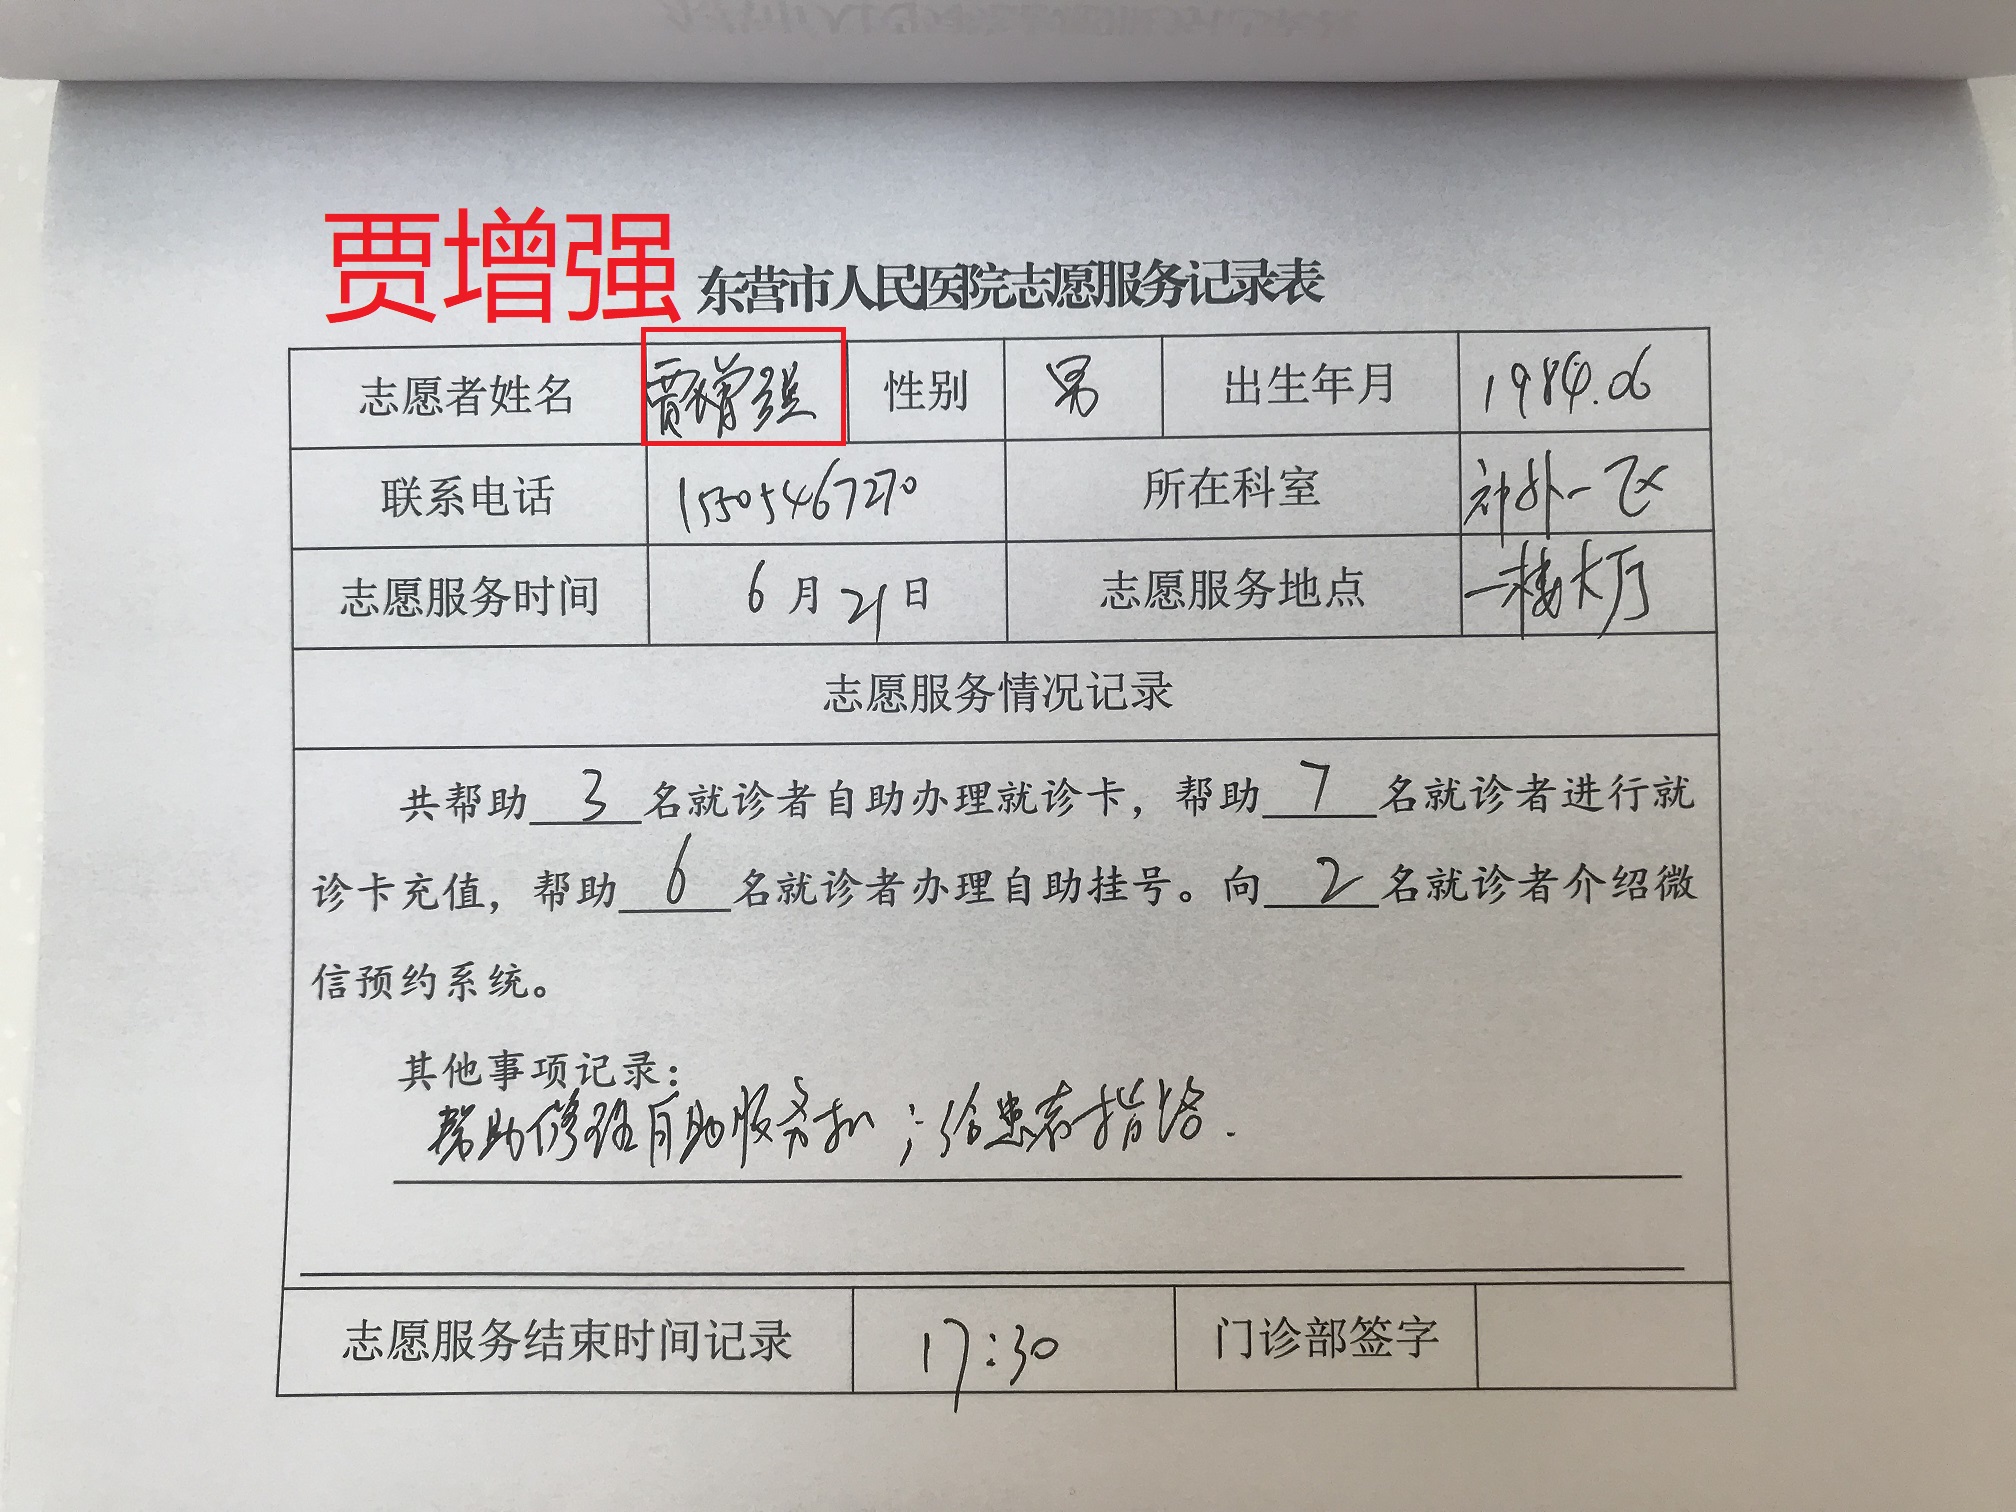 贾增强
东营市人民医院志愿服务记录表
志愿者姓名 贾增强 性别 男 出生年月 1984.06
联系电话 15305467270 所在科室 神外一区
志愿服务时间 6月21日 志愿服务地点 一楼大厅
志愿服务情况记录
共帮助 3 名就诊者自助办理就诊卡，帮助 7 名就诊者进行就
诊卡充值，帮助 6 名就诊者办理自助挂号。向 2 名就诊者介绍微
信预约系统。
其他事项记录：
帮助修理自助服务机；给患者指路.
志愿服务结束时间记录 17:30 门诊部签字